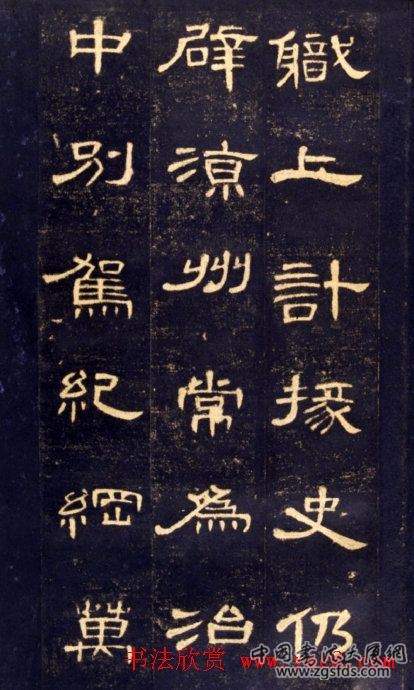 職上計掾史仍
辟涼州常為治
中別駕紀綱萬
书法欣赏
www.zgsfds.com